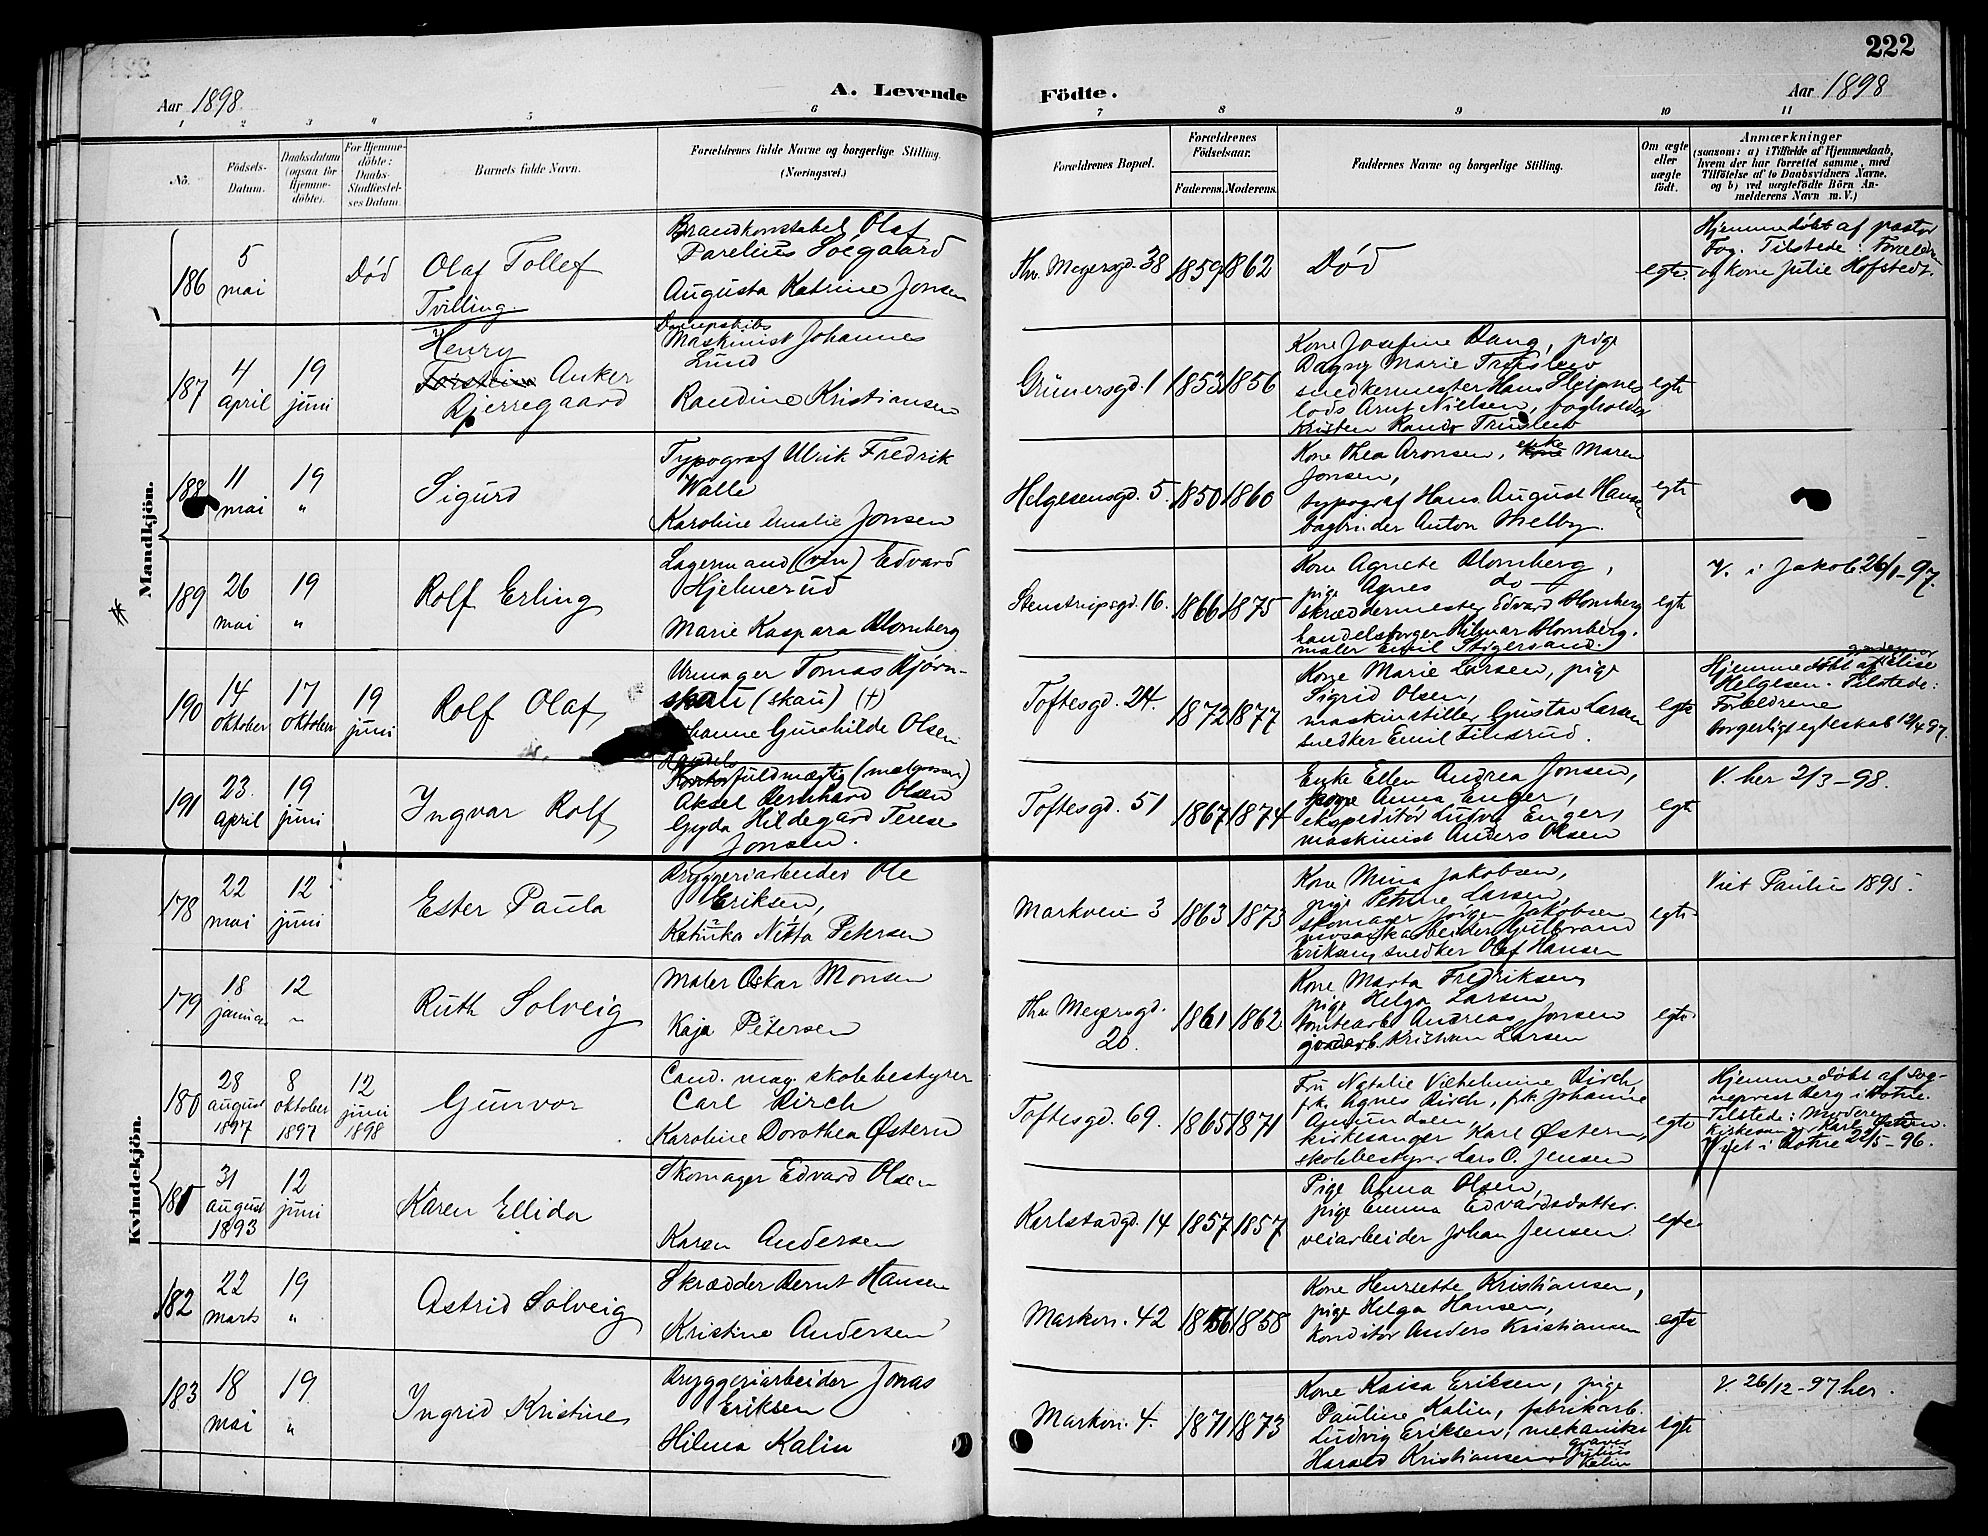 222
Aar 1898.
A. Levende
Födte.
Aar 1898
1 2 3 4 5 6
7 8 9 10 11
Nö.
Födsels-
Datum.
Daabsdatum
(ogsaa for
Hjemme-
döbte).
For Hjemme-
döbte:
Daabs-
Stadfæstel-
ses Datum.
Barnets fulde Navn.
Forældrenes fulde Navne og borgerlige Stilling.
(Næringsvei.)
Forældrenes Bopæl.
Forældrenes
Födselsaar.
Faderens. Moderens.
Faddernes Navne og borgerlige Stilling.
Om ægte
eller
uægte
født.
Anmærkninger
(saasom: a) i Tilfælde af Hjemmedaab,
hvem der har forrettet samme, med
Tilföielse af to Daabsvidners Navne,
og b) ved uægtefödte Börn An-
melderens Navn m. V.)
Mandkjön.
186
5
mai
Död
Olaf Tollef
Tvilling
Brandkonstabel Olaf
Parelius Solgaard
Augusta Katrine Jonsen
Thv. Meyersgd. 38
1859 1862
Död
egte
Hjemmedøbt af pastor
Fog. Tilstede: Foreldr.
og kone Julie Hofstedt.
187
4
april
19
juni
Henry
Anker
Bjerregaard
Dampskibs
Maskinist Johannes
Lund
Randine Kristiansen
Grünersgd. 1
1853 1856
Kone Josefine Dang, pige
Dagny Marie Truslew
snedkermester Hans
lods Arnt Nielsen, bogholder
Kristen Rand Truslew
egte
188
11
mai
19
"
Sigurd
Typograf Ulrik Fredrik
Walle
Karoline Amalie Jonsen
Helgesensgd. 5.
1850 1860
Kone Thea Aronsen, enke Maren
Jonsen,
typograf Hans August Hansen
bogbinder Anton Melby.
egte
189
26
mai
19
"
Rolf Erling
Lagermand (vin) Edvard
Hjelmerud
Marie Kaspara Blomberg
Stenstrupsgd. 16.
1866 1875
Kone Agnete Blomberg,
pige Agnes do
skræddermester Edvard Blomberg
handelsborger Hilmar Blomberg.
maler Emil Stigersand.
egte
V. i Jakob 26/1-97.
190
14
oktober
17
oktober
19
juni
Rolf Olaf
Urmager Tomas Bjørn-
skau (skau) (†)
Johanne Gunhilde Olsen
Toftesgd. 24.
1872 1877
Kone Marie Larsen, pige
Sigrid Olsen,
maskinstiller Gustav Larsen
snedker Emil
egte
Hjemmedøbt af Elise
Helgesen. Tilstede:
Forældrene
borgerligt egteskab 12/4 97.
191
23.
april
19
juni
Ingvar Rolf
Handels
fuldmægtig
Aksel Bernhard Olsen
Gyda Hildegard Terese
Jonsen.
Toftesgd. 51
1867 1874
Enke Ellen Andrea Jonsen,
pige Anna Enger,
ekspeditør Ludvig Enger,
maskinist Anders Olsen
egte
V. her 2/3-98.
Kvindekjön.
178
22
mai
12
juni
Ester Paula
Bryggeriarbeider Ole
Eriksen,
Katinka Nitta Petersen
Markvein 3
1863 1873
Kone Mina Jakobsen,
pige Petrine Larsen,
skomager Jørgen Jakobsen
Gulbrand
Eriksen, snedker Olaf Hansen
egte
Viet Paulu 1895.
179
18
januar
12
"
Ruth Solveig
Maler Oskar Monsen
Kaja Petersen
Thv. Meyersgd.
20.
1861 1862
Kone Marta Fredriksen,
pige Helga Larsen
tomtearb. Andreas Jonsen
Kristian Larsen
egte
180
28
august
1897
8
oktober
1897
12
juni
1898
Gunvor
Cand. mag. skolebestyrer
Carl Birch
Karoline Dorothea Østern
Toftesgd. 69.
1865 1871
Fru Natalie Vilhelmine Birch,
frk. Agnes Birch, frk. Johanne
Amundsen,
kirkesanger Karl Østern,
skolebestyrer Lars O. Jensen
egte
Hjemmedøbt af Sog-
neprest Berg i Botne.
Tilstede: Moderen,
kirkesanger Karl Østern.
Viet i Botne 22/5-96.
181
31
august
1893
12
juni
Karen Ellida
Skomager Edvard Olsen
Karen Andersen
Karlstadgd. 14
1857 1857
Pige Anna Olsen,
pige Emma Edvardsdatter.
veiarbeider Johan Jensen
egte
182
22
marts
19
"
Astrid Solveig
Skrædder Bernt Hansen
Kristine Andersen
Markvn. 42
1856 1858
Kone Henriette Kristiansen,
pige Helga Hansen,
konditor Anders Kristiansen
egte
183
18
mai
19
"
Ingrid Kristine
Bryggeriarbeider Jonas
Eriksen
Hilma Kalin
Markvn. 4.
1871 1873
Kone Kaisa Eriksen, pige
Pauline Kalin, fabrikarb.
Ludvig Eriksen, mekaniker
Harald Kristiansen, gravør
Julius
Kalin
egte
V. 26/12-97 her.